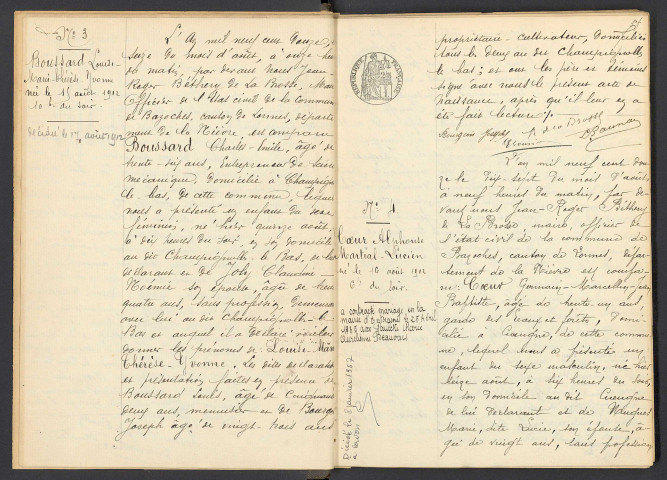 Nº 3
Boussard Louise
Marie-Thérèse Yvonne
née le 15 août 1912
10 h. du soir.
Décédée le 17 août 1912
L'An mil neuf cent douze, le
seize du mois d'août, à onze heures
du matin, par devant Nous Jean
Roger Béthery de La Brosse, Maire
Officier de l'État civil de la Commune
de Bazoches, canton de Lormes, départe-
ment de la Nièvre, est comparu
Boussard Charles-Émile, âgé de
trente-six ans, Entrepreneur de
mécanique, domicilié à Champignolles
le bas, de cette commune, lequel
nous a présenté un enfant du sexe
féminin, né hier quinze août,
à dix heures du soir, en son domicile
au dit Champignolles-le Bas, de lui
déclarant et de Joly Claudine-
Noémie son épouse, âgée de
quatre ans, sans profession, demeurant
avec lui au dit Champignolles-le
Bas et auquel il a déclaré vouloir
donner les prénoms de Louise-Marie
Thérèse-Yvonne. Les dites déclaration
et présentation faites en présence de
Boussard Louis, âgé de cinquante
deux ans, menuisier et de
Joseph âgé de vingt-trois ans
propriétaire-cultivateur, domiciliés
tous les deux au dit Champignolles
le bas; et ont les père et témoins
signé avec nous le présent acte de
naissance, après qu'il leur en a
été fait lecture.
RÉPUBLIQUE FRANÇAISE
Nº 4
Cœur Alphonse
Martial Lucien
né le 16 août 1912
6 h du soir.
a contracté mariage en la
mairie d'
Décédé le 8 janvier 1987
L'an mil neuf cent dou-
ze le dix-sept du mois d'août
à neuf heures du matin, par de-
vant nous Jean-Roger Béthery
de La Brosse, maire, officier de
l'état civil de la commune de
Bazoches, canton de Lormes, dépar-
tement de la Nièvre est compa-
ru Cœur Germain-Marcellin-Jean
Baptiste, âgé de trente-un ans,
garde des eaux et forêts, domi-
cilié à , de cette commu-
ne, lequel nous a présenté un
enfant du sexe masculin, né hier
seize août, à six heures du soir,
en son domicile au dit
de lui déclarant et de
Marie, dite Lucie, son épouse, â-
gée de vingt ans, sans profession